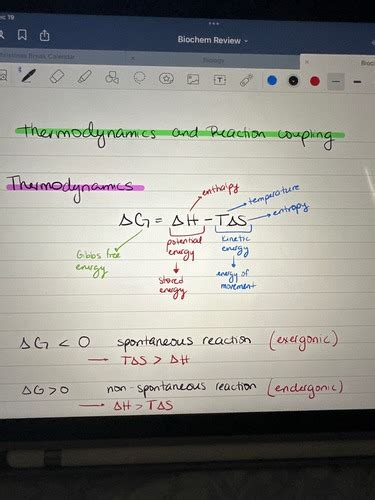 19
Biochem Review
Break Calendar
Biology
Thermodynamics and Reaction coupling
Thermodynamics
enthalpy
temperature
entropy
ΔG = ΔH - TΔS
Gibbs free energy
potential energy
kinetic energy
stored energy
energy of movement
ΔG < 0 spontaneous reaction (exergonic)
→ TΔS > ΔH
ΔG > 0 non-spontaneous reaction (endergonic)
→ ΔH > TΔS